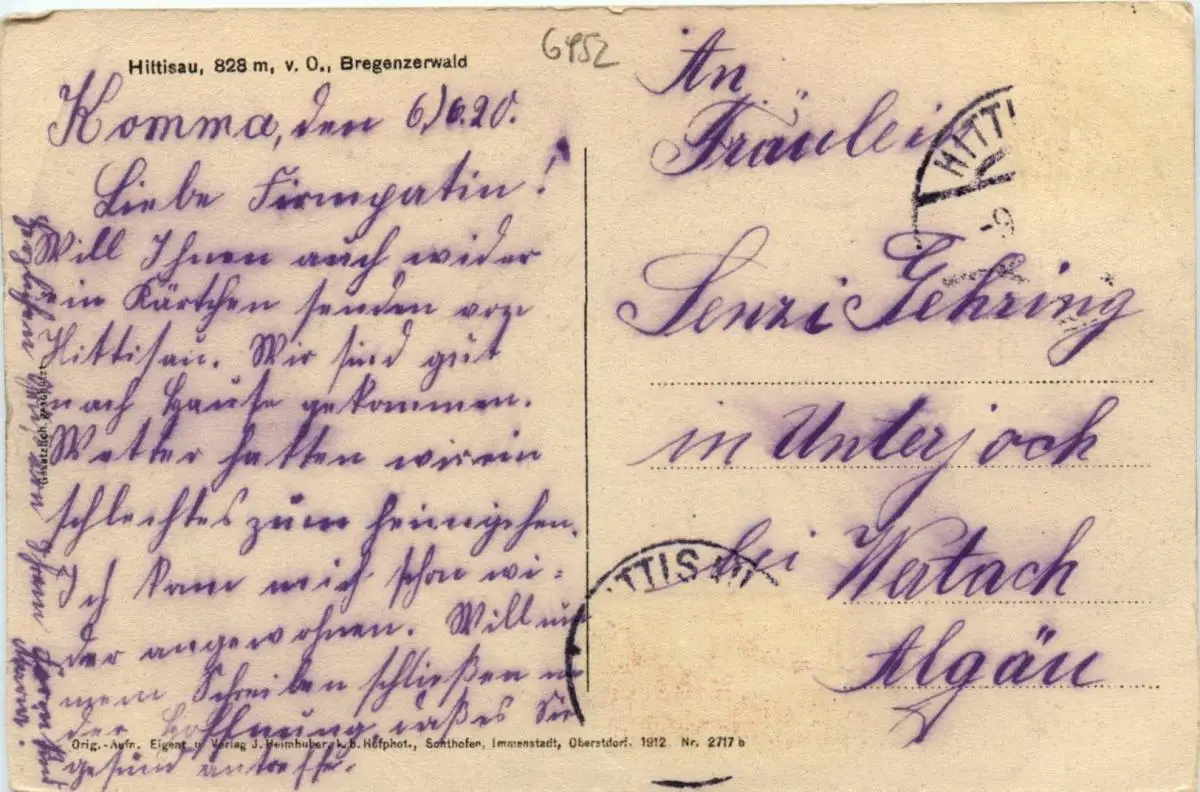 6452
Hittisau, 828 m, v. O., Bregenzerwald
Komma, den 6./6.20.
Liebe Firmpatin!
Will Ihnen auch wider
ein Kärtchen senden von
Hittisau. Wir sind gut
nach Hause gekommen.
Wetter hatten wir ein
schlechtes zum heimgehen.
Ich kam mich schon wi-
der angewohnen. Will
Schreiben schließen in
der Hoffnung, daß es Sie
gesund antreffe.
Ihnen
Gesetzlich geschützt
Orig.-Aufn. Eigent. u. Verlag J. Heimhuber, k. b. Hofphot., Sonthofen, Immenstadt, Oberstdorf. 1912 Nr. 2717 b
An
Fräulein
Senzi Gehring
in Unterjoch
bei Wertach
Algäu
HITTI
-9
ITTISAU